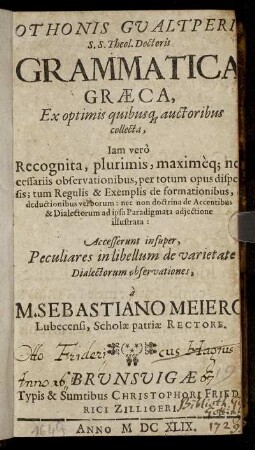 OTHONIS GVALTPERI
S.S. Theol. Doctoris
GRAMMATICA
GRÆCA,
Ex optimis quibusq; auctoribus
collecta,
Iam verò
Recognita, plurimis, maximèq; ne
cessariis observationibus, per totum opus disper
sis; tum Regulis & Exemplis de formationibus,
deductionibus verborum: nec non doctrina de Accentibus
& Dialectorum ad ipsa Paradigmata adjectione
illustrata:
Accesserunt insuper,
Peculiares in libellum de varietate
Dialectorum observationes,
à
M. SEBASTIANO MEIERO
Lubecensi, Scholæ patriæ RECTORE.
Otto Frideri cus
Anno
BRVNSVIGÆ
Typis & Sumtibus CHRISTOPHORI FRIDE
RICI ZILLIGERI,
ANNO M DC XLIX.
1649